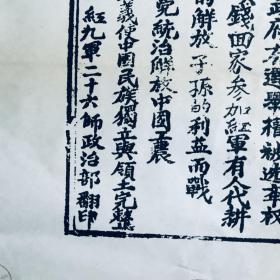 政府不選舉權被選舉权
錢回家参加紅軍有人代耕
的解放子孫的利益而戰
完統治解放中國農
義使中國民族獨立與領土完整
紅九軍二十六師政治部翻印